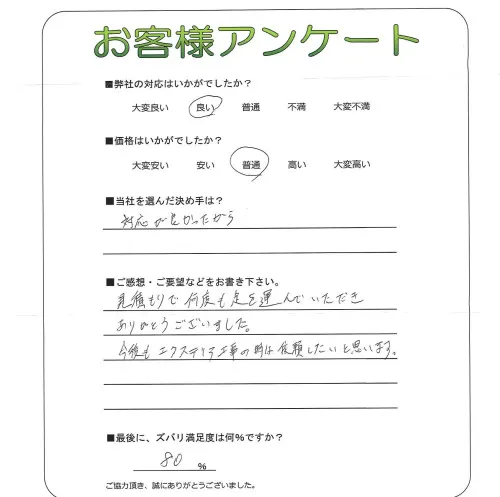 お客様アンケート
■弊社の対応はいかがでしたか？
大変良い 良い 普通 不満 大変不満
■価格はいかがでしたか？
大変安い 安い 普通 高い 大変高い
■当社を選んだ決め手は？
対応が良かったから
■ご感想・ご要望などをお書き下さい。
見積もりで何度も足を運んでいただき
ありがとうございました。
今後もエクステリア工事の時は依頼したいと思います。
■最後に、ズバリ満足度は何%ですか？
80 %
ご協力頂き、誠にありがとうございました。